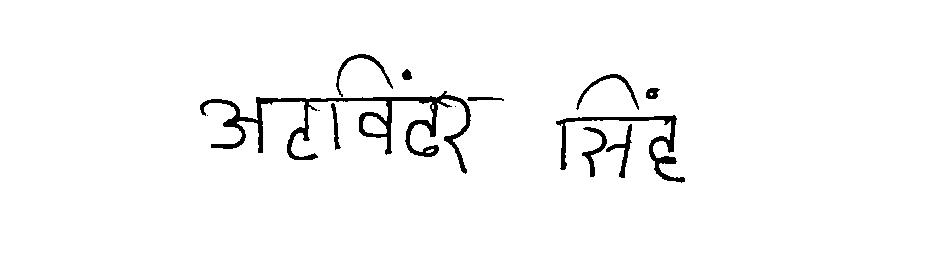 अटाविंदर सिंह